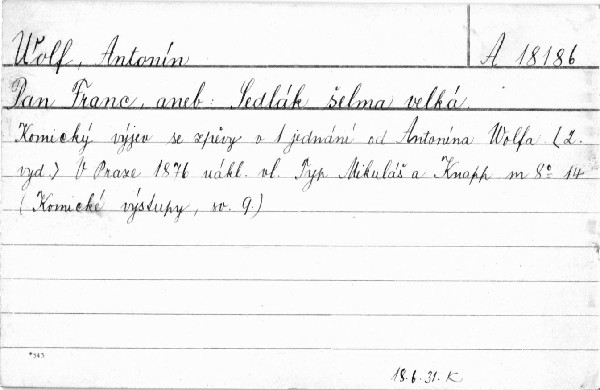 Wolf, Antonín
A 18186
Pan Franc, aneb: Sedlák šelma velká.
Komický výjev se zpěvy o 1 jednání od Antonína Wolfa (2.
vyd.) V Praze 1876 nákl. vl. Typ Mikuláš a Knapp m 8° 14
(Komické výstupy, sv. 9.)
*545
18.6.31. K